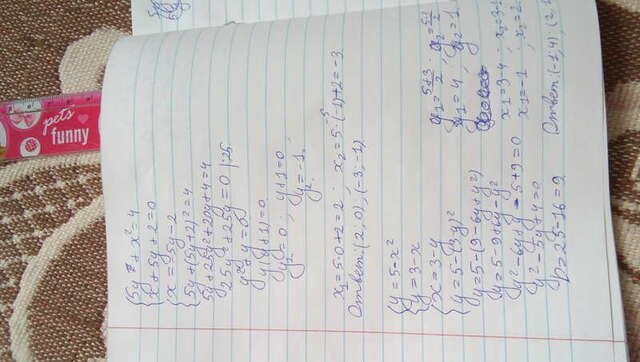 pets
funny
{5y + x² = 4
{x + 5y + 2 = 0
{x = -5y - 2
{5y + (5y+2)² = 4
5y + 25y² + 20y + 4 = 4
25y² + 25y = 0 |:25
y² + y = 0
y(y+1) = 0
y₁ = 0 ; y+1 = 0
y₂ = -1
x₁ = 5·0+2 = 2 ; x₂ = 5·(-1)+2 = -3
Ответ: (2, 0), (-3; -1)
{y = 5 - x²
{y = 3 - x
{x = 3 - y
{y = 5 - (3-y)²
y = 5 - (9 - 6y + y²)
y = 5 - 9 + 6y - y²
y² - 6y + y - 5 + 9 = 0
y² - 5y + 4 = 0
D = 25 - 16 = 9
y₁ = (5+3)/2 ;
y₁ = 4 ; y₂ = 1
x₁ = 3-4 ;
x₁ = -1 ;
Ответ: (-1, 4); (2,